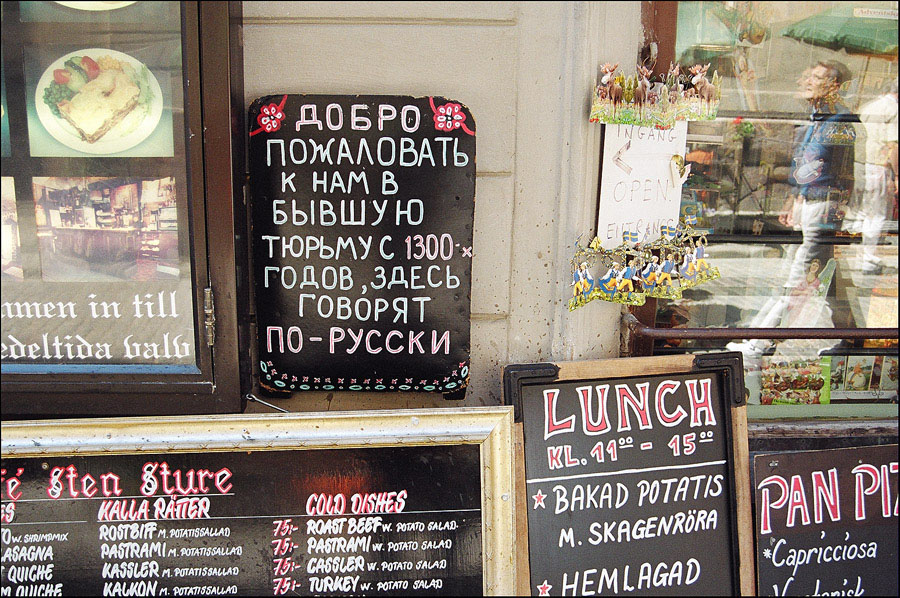 ДОБРО
ПОЖАЛОВАТЬ
К НАМ В
БЫВШУЮ
ТЮРЬМУ С 1300-Х
ГОДОВ, ЗДЕСЬ
ГОВОРЯТ
ПО-РУССКИ
INGANG
OPEN
mmen in till
edeltida valv
LUNCH
KL. 11⁰⁰ - 15⁰⁰
BAKAD POTATIS
M. SKAGENRÖRA
HEMLAGAD
Sten Sture
KALLA RÄTTER
ROSTBIFF M. POTATISSALLAD
PASTRAMI M. POTATISSALLAD
KASSLER M. POTATISSALLAD
KALKON M. POTATISSALLAD
COLD DISHES
75:- ROAST BEEF W. POTATO SALAD
75:- PASTRAMI W. POTATO SALAD
75:- CASSLER W. POTATO SALAD
75:- TURKEY W. POTATO SALAD
W. SHRIMPMIX
LASAGNA
QUICHE
M QUICHE
PAN PIZ
*Capricciosa